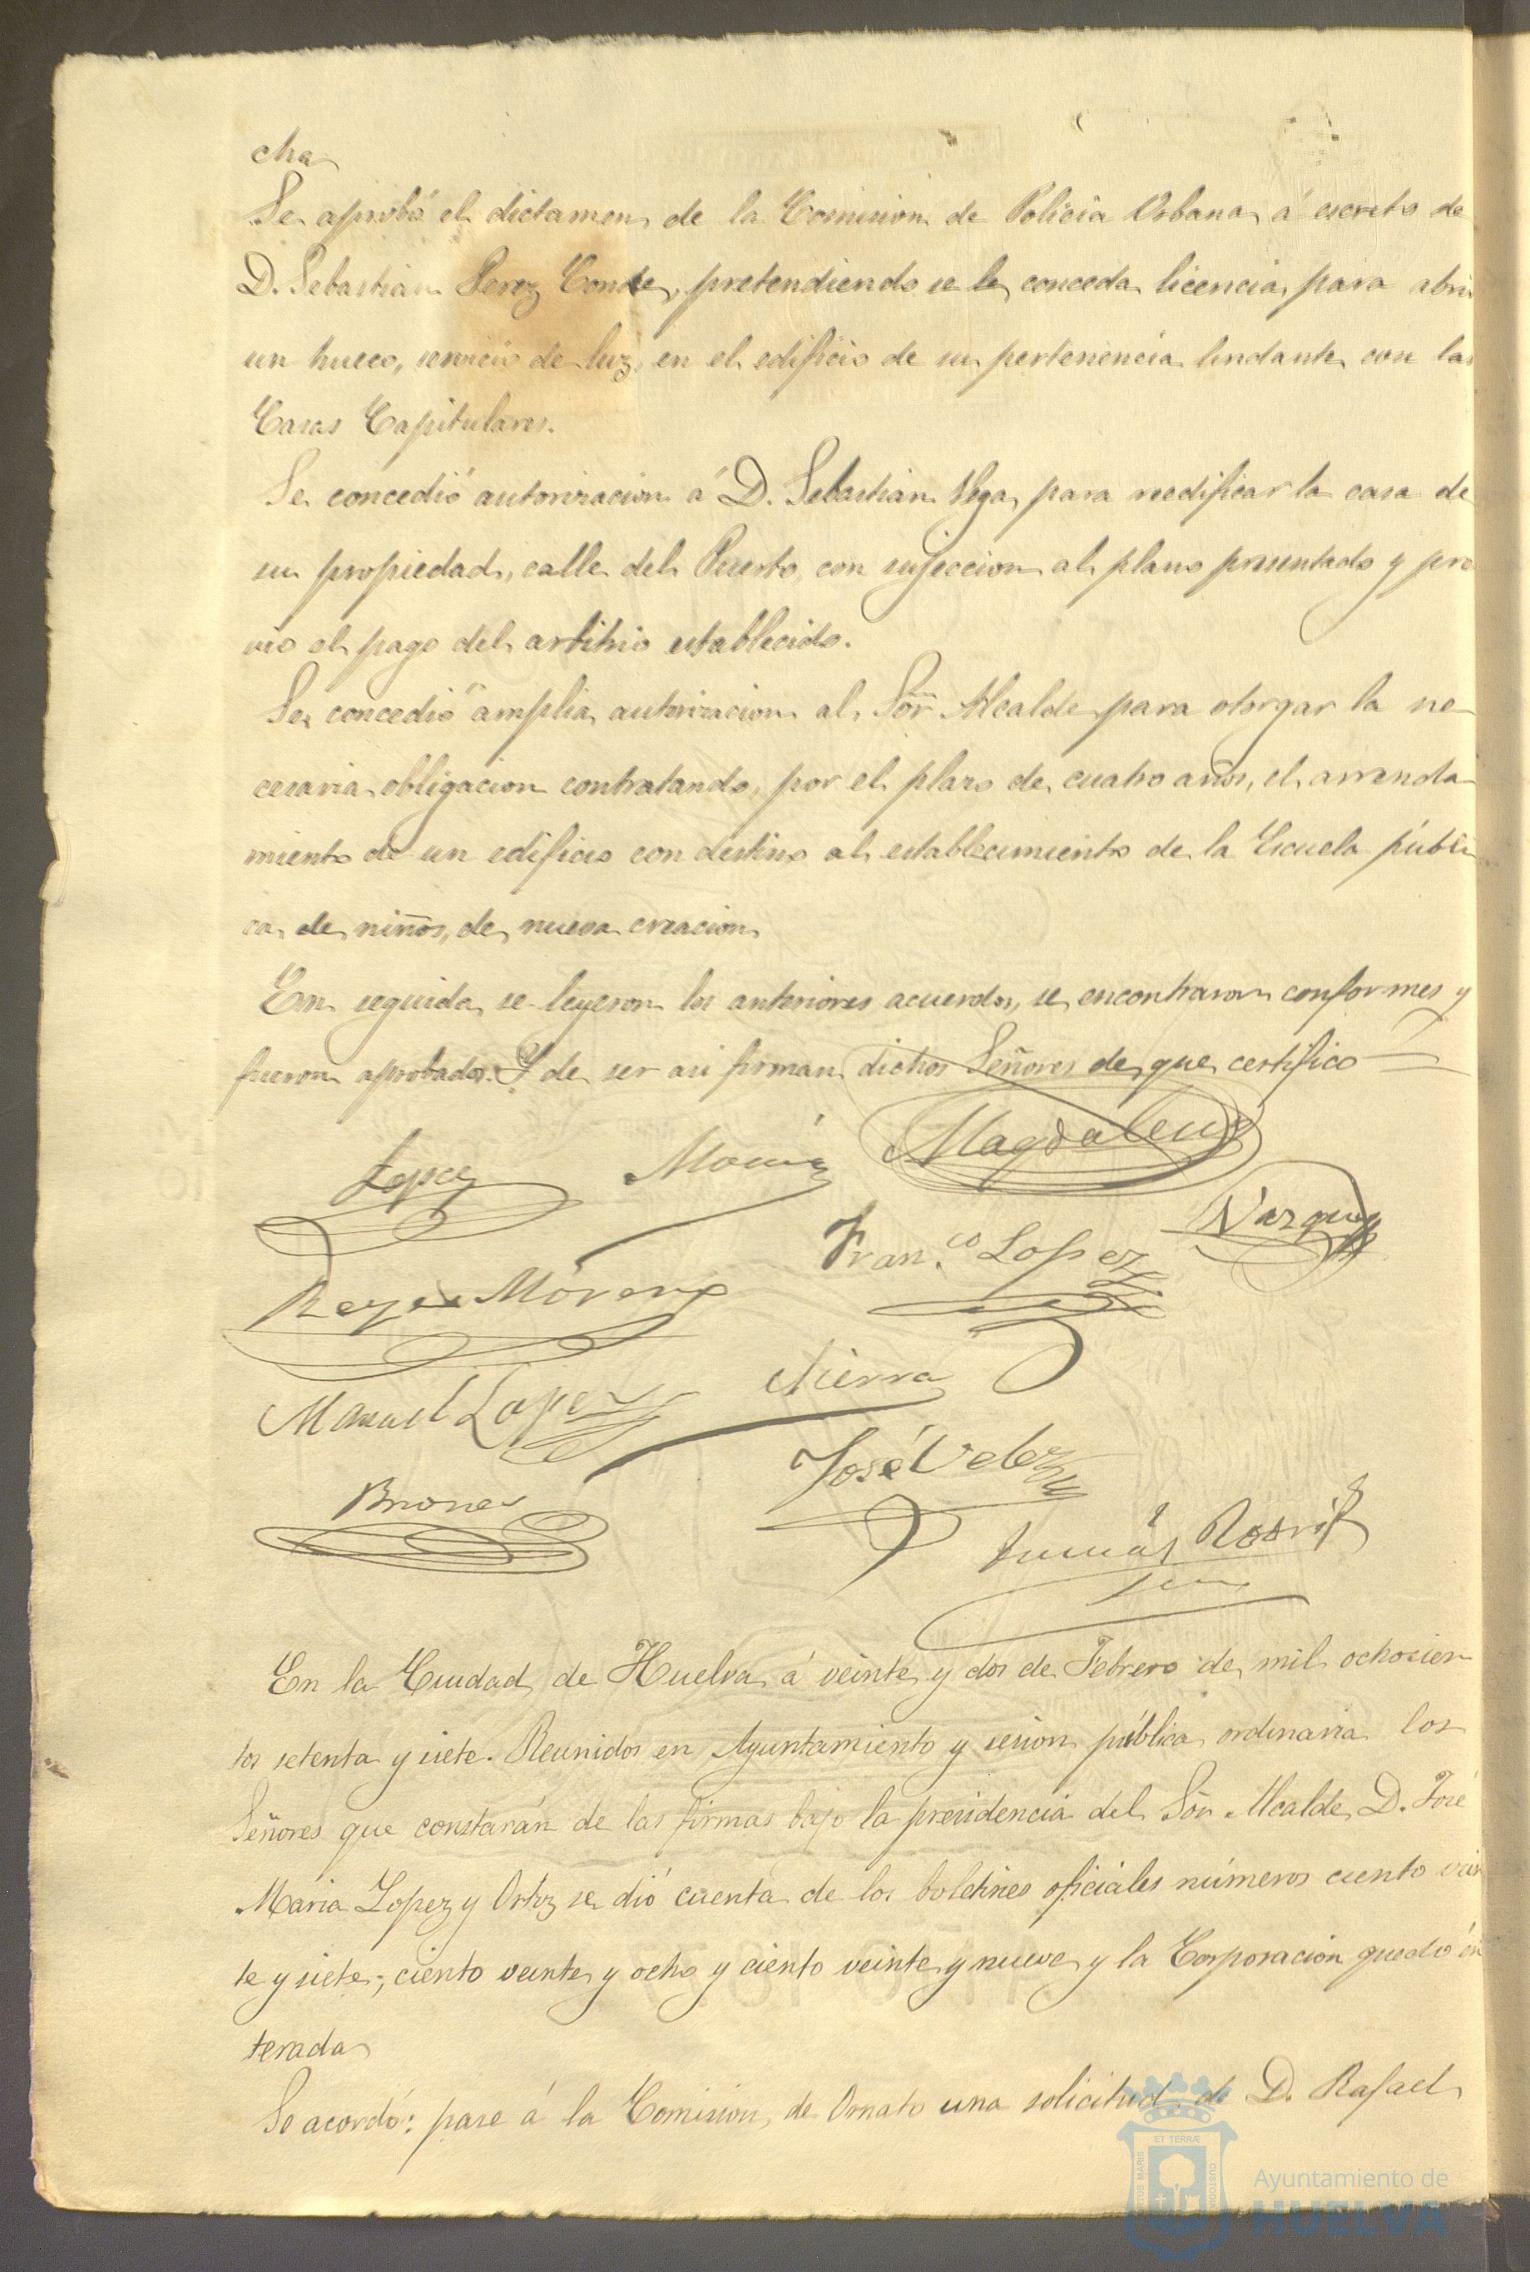 cha
Se aprobó el dictamen de la Comision de Policia Urbana á escrito de
D. Sebastian Perez Conde, pretendiendo se le conceda licencia para abrir
un hueco, servicio de luz, en el edificio de su pertenencia lindante con las
Casas Capitulares.
Se concedió autorizacion á D. Sebastian Vega para reedificar la casa de
su propiedad, calle del Puerto, con sujeccion al plano presentado y pre
vio el pago del arbitrio establecido.
Se concedió amplia autorizacion al Sōr Alcalde para otorgar la ne
cesaria obligacion contratando, por el plazo de cuatro años, el arrenda
miento de un edificio con destino al establecimiento de la Escuela públi
ca de niños, de nueva creacion
En seguida se leyeron los anteriores acuerdos, se encontraron conformes y
fueron aprobados. Y de ser asi firman dichos Señores de que certifico
Lopez Magdalena
Vazquez
Franco Lopez
Reyes Moreno
Sierra
Manuel Lopez
José Velez
Briones
Tumás
En la Ciudad de Huelva á veinte y dos de Febrero de mil ochocien
tos setenta y siete. Reunidos en Ayuntamiento y sesion pública ordinaria los
Señores que constarán de las firmas bajo la presidencia del Sōr Alcalde D. José
Maria Lopez y Ortiz se dió cuenta de los boletines oficiales números ciento vein
te y siete, ciento veinte y ocho y ciento veinte y nueve y la Corporación quedó en
terada
Se acordó: pase á la Comision de Ornato una solicitud de D. Rafael
ET TERRÆ
PORTUS MARIS
CUSTODIA
Ayuntamiento de
HUELVA